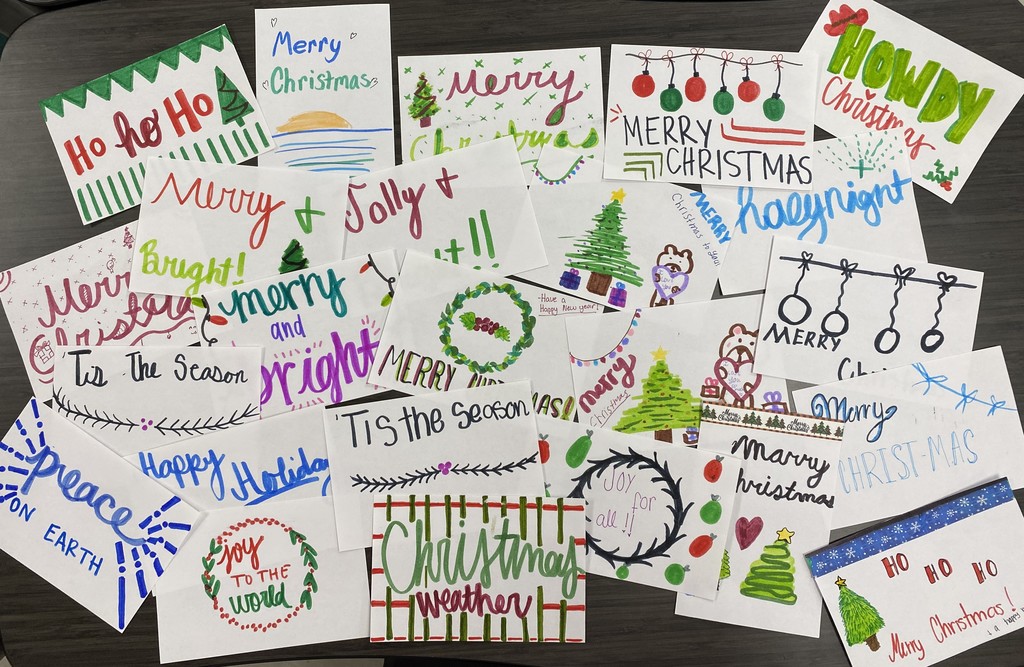 Ho ho Ho
Merry
Christmas
Merry
Christmas
MERRY
CHRISTMAS
HOWDY
Christmas
Merry +
Bright!
Jolly +
MERRY
Christmas to you!
holy night
Merry
Christmas
merry
and
bright
-Have a
Happy New year!
MERRY
MAS!!
merry
Christmas
MERRY
'Tis The Season
'Tis the Season
Merry
CHRIST-MAS
peace
ON EARTH
Happy Holiday
joy
TO THE
world
Christmas
weather
JOY
for
all!!
Marry
Christmas
HO HO HO
Merry Christmas!